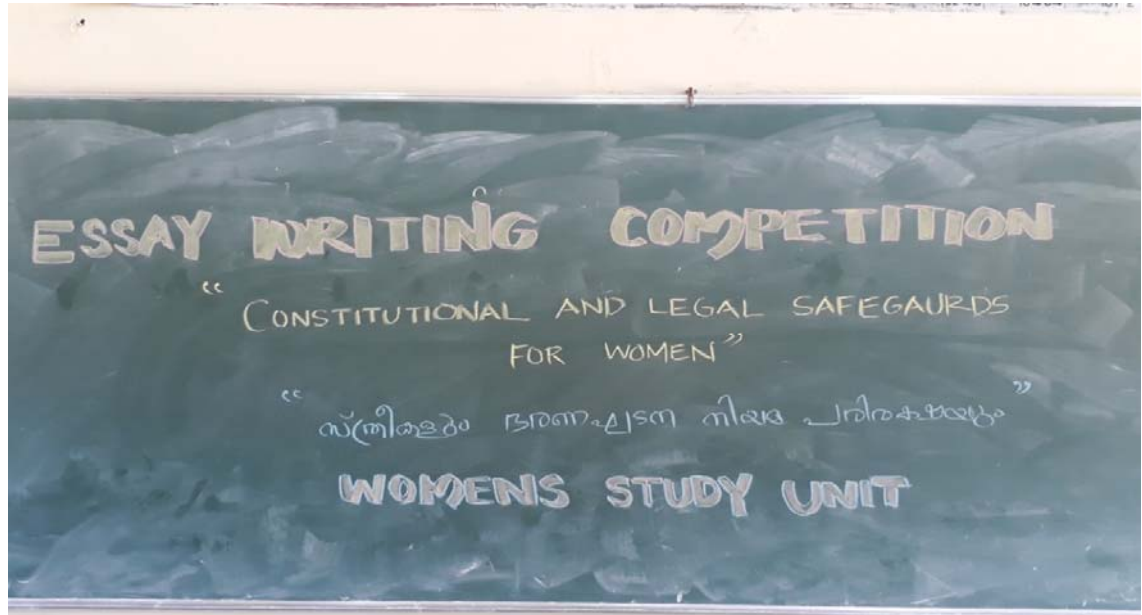 ESSAY WRITING COMPETITION
"CONSTITUTIONAL AND LEGAL SAFEGAURDS
FOR WOMEN"
"സ്ത്രീകളും ഭരണഘടന നിയമ പരിരക്ഷയും"
WOMENS STUDY UNIT